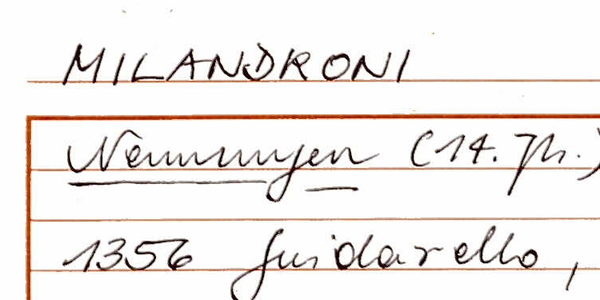 MILANDRONI
Nennungen (14. Jh.)
1356 Guidarello,